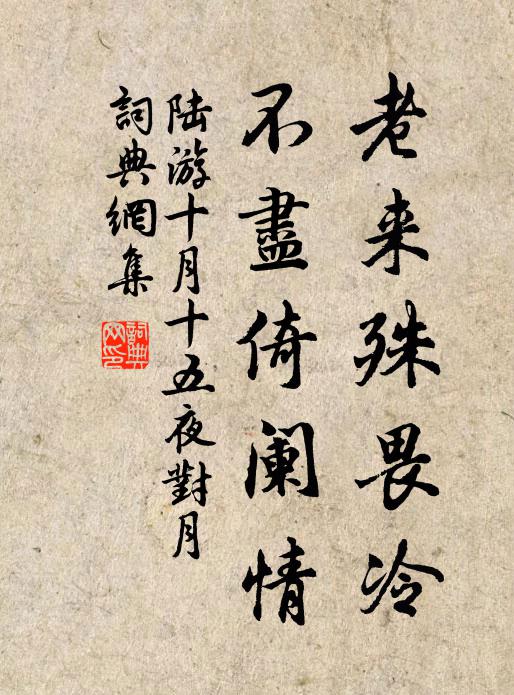 老来殊畏冷
不盡倚阑情
陸游十月十五夜對月
詞典網集
詞典網印